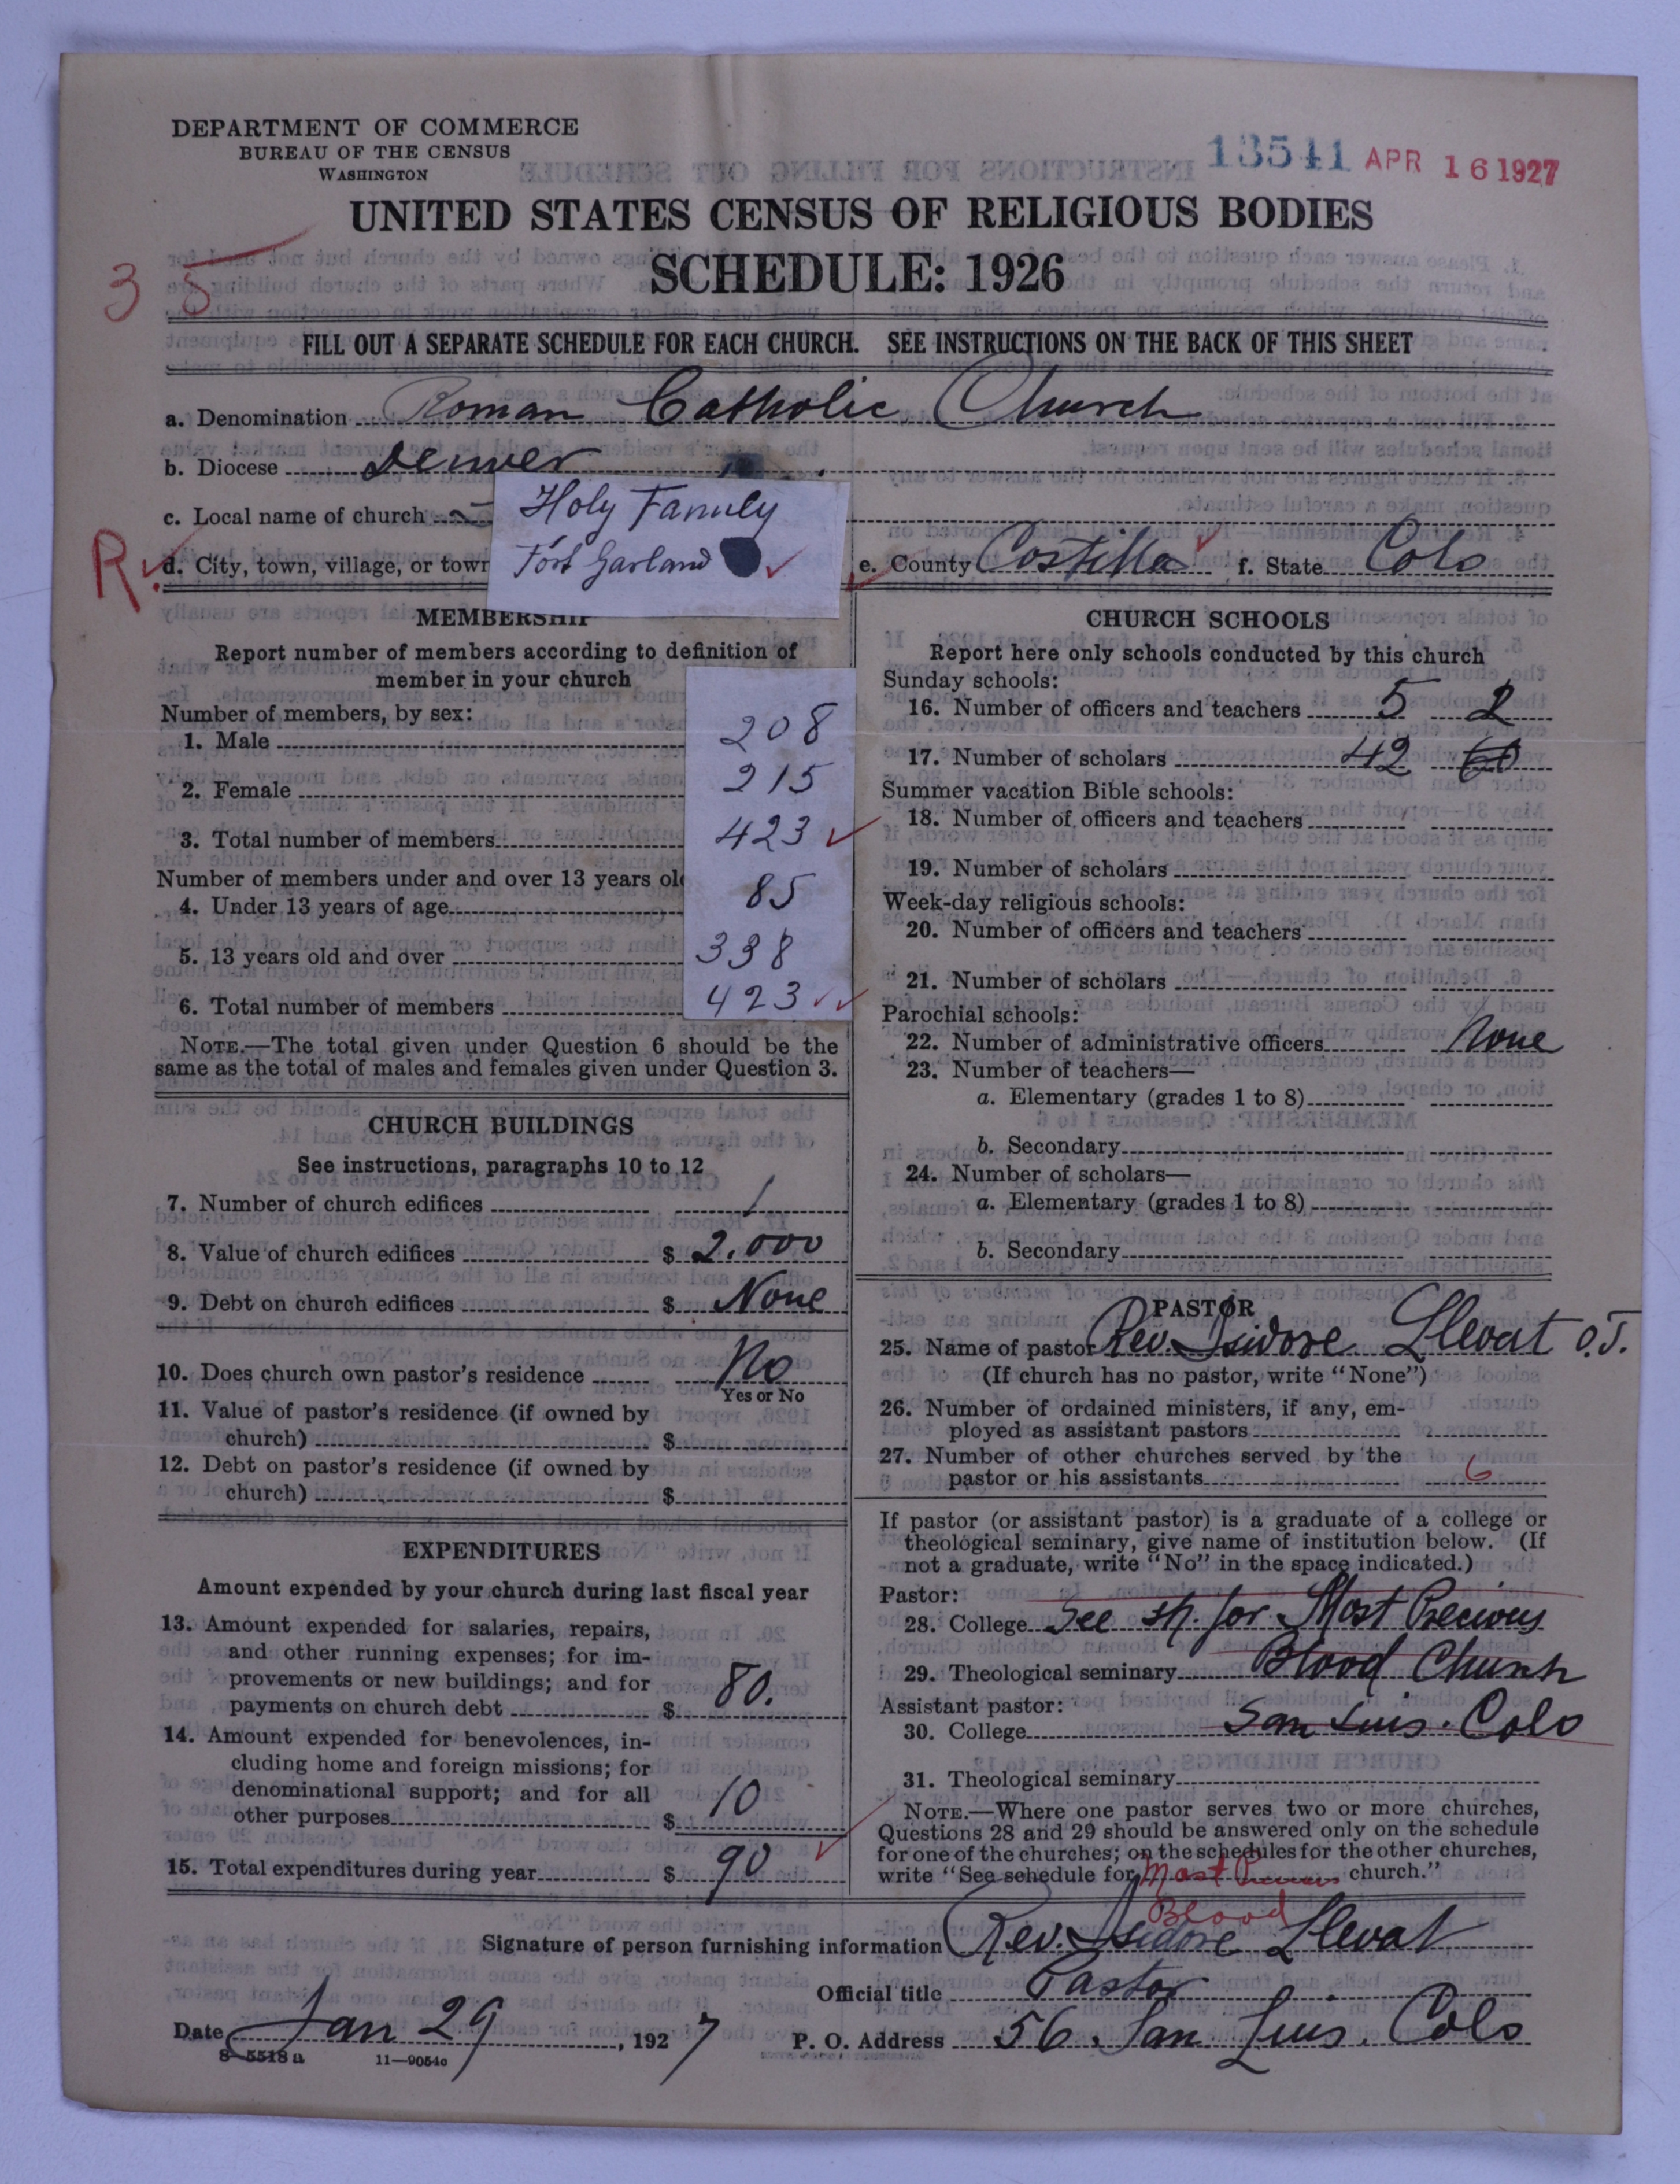 DEPARTMENT OF COMMERCE
BUREAU OF THE CENSUS
WASHINGTON
13541 APR 16 1927
UNITED STATES CENSUS OF RELIGIOUS BODIES
SCHEDULE: 1926
3 5
FILL OUT A SEPARATE SCHEDULE FOR EACH CHURCH. SEE INSTRUCTIONS ON THE BACK OF THIS SHEET
a. Denomination Roman Catholic Church
b. Diocese Denver
c. Local name of church Holy Family
R. d. City, town, village, or town Fort Garland e. County Costilla f. State Colo
MEMBERSHIP
Report number of members according to definition of
member in your church
Number of members, by sex:
1. Male 208
2. Female 215
3. Total number of members 423
Number of members under and over 13 years old
4. Under 13 years of age 85
5. 13 years old and over 338
6. Total number of members 423
NOTE.—The total given under Question 6 should be the
same as the total of males and females given under Question 3.
CHURCH BUILDINGS
See instructions, paragraphs 10 to 12
7. Number of church edifices 1
8. Value of church edifices $ 2.000
9. Debt on church edifices $ None
10. Does church own pastor's residence No
Yes or No
11. Value of pastor's residence (if owned by
church) $
12. Debt on pastor's residence (if owned by
church) $
EXPENDITURES
Amount expended by your church during last fiscal year
13. Amount expended for salaries, repairs,
and other running expenses; for im-
provements or new buildings; and for
payments on church debt $ 80.
14. Amount expended for benevolences, in-
cluding home and foreign missions; for
denominational support; and for all
other purposes $ 10
15. Total expenditures during year $ 90
CHURCH SCHOOLS
Report here only schools conducted by this church
Sunday schools:
16. Number of officers and teachers 5 2
17. Number of scholars 42 60
Summer vacation Bible schools:
18. Number of officers and teachers
19. Number of scholars
Week-day religious schools:
20. Number of officers and teachers
21. Number of scholars
Parochial schools:
22. Number of administrative officers None
23. Number of teachers—
a. Elementary (grades 1 to 8)
b. Secondary
24. Number of scholars—
a. Elementary (grades 1 to 8)
b. Secondary
PASTOR
25. Name of pastor Rev. Isidore Llevat O.T.
(If church has no pastor, write "None")
26. Number of ordained ministers, if any, em-
ployed as assistant pastors
27. Number of other churches served by the
pastor or his assistants 6
If pastor (or assistant pastor) is a graduate of a college or
theological seminary, give name of institution below. (If
not a graduate, write "No" in the space indicated.)
Pastor:
28. College See sh. for Most Precious
29. Theological seminary Blood Church
Assistant pastor:
30. College San Luis. Colo
31. Theological seminary
NOTE.—Where one pastor serves two or more churches,
Questions 28 and 29 should be answered only on the schedule
for one of the churches; on the schedules for the other churches,
write "See schedule for Most Precious church."
Blood
Signature of person furnishing information Rev. Isidore Llevat
Official title Pastor
Date Jan 29, 1927 P. O. Address 56 San Luis. Colo
8—5518 a 11—9054a